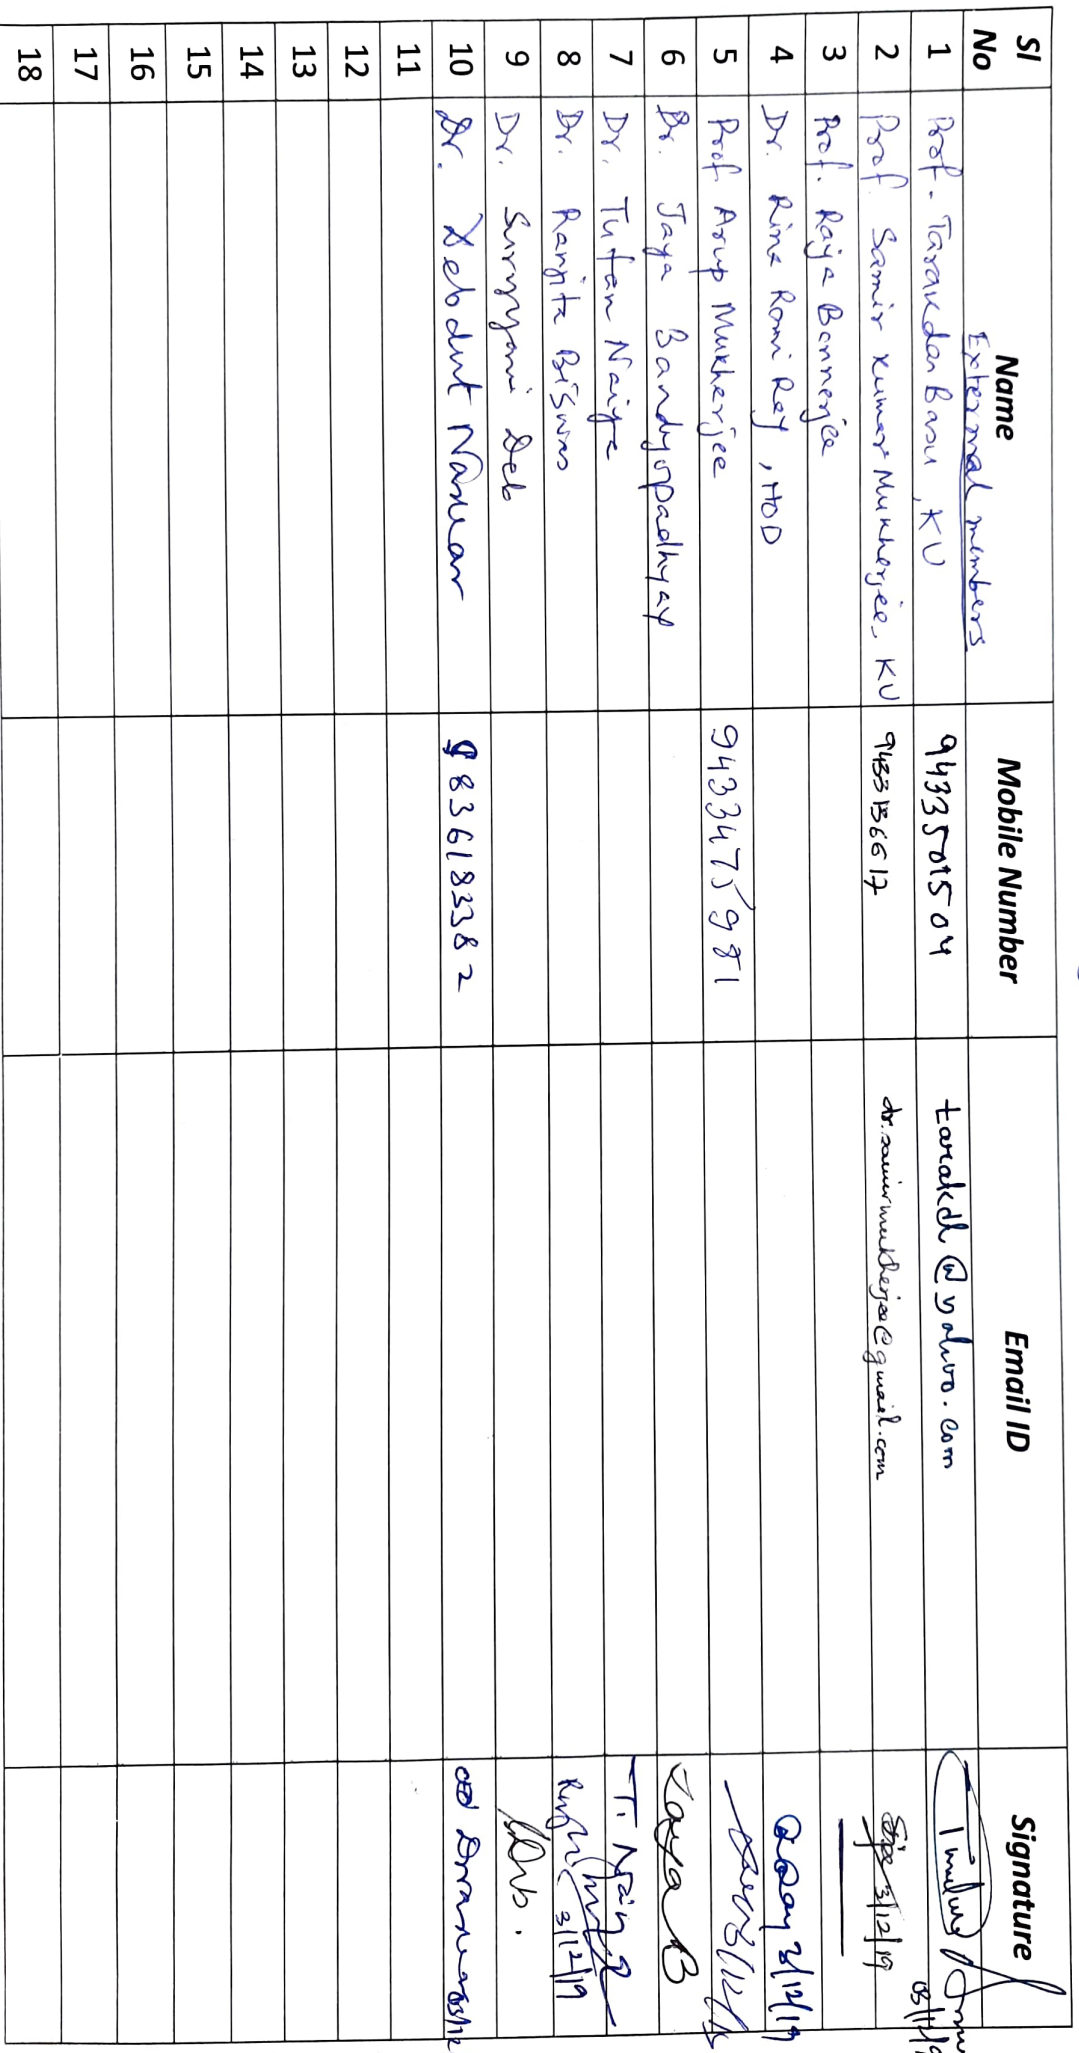 Sl No Name Mobile Number Email ID Signature
External members
1 Prof. Tarakdas Basu, KU 9433501504 tarakdh@yahoo.com
2 Prof. Samir Kumar Mukherjee, KU 9433136617 dr.samirmukherjee@gmail.com 3/12/19
3 Prof. Raja Bannerjee
4 Dr. Rina Rani Ray, HOD 3/12/19
5 Prof. Arup Mukherjee 9433475981
6 Dr. Jaya Bandyopadhyay Jaya B
7 Dr. Tufan Naiya T. Naiya
8 Dr. Ranjita Biswas 3/12/19
9 Dr. Suryyani Deb SDeb.
10 Dr. Debdut Naskar 836183382
11
12
13
14
15
16
17
18